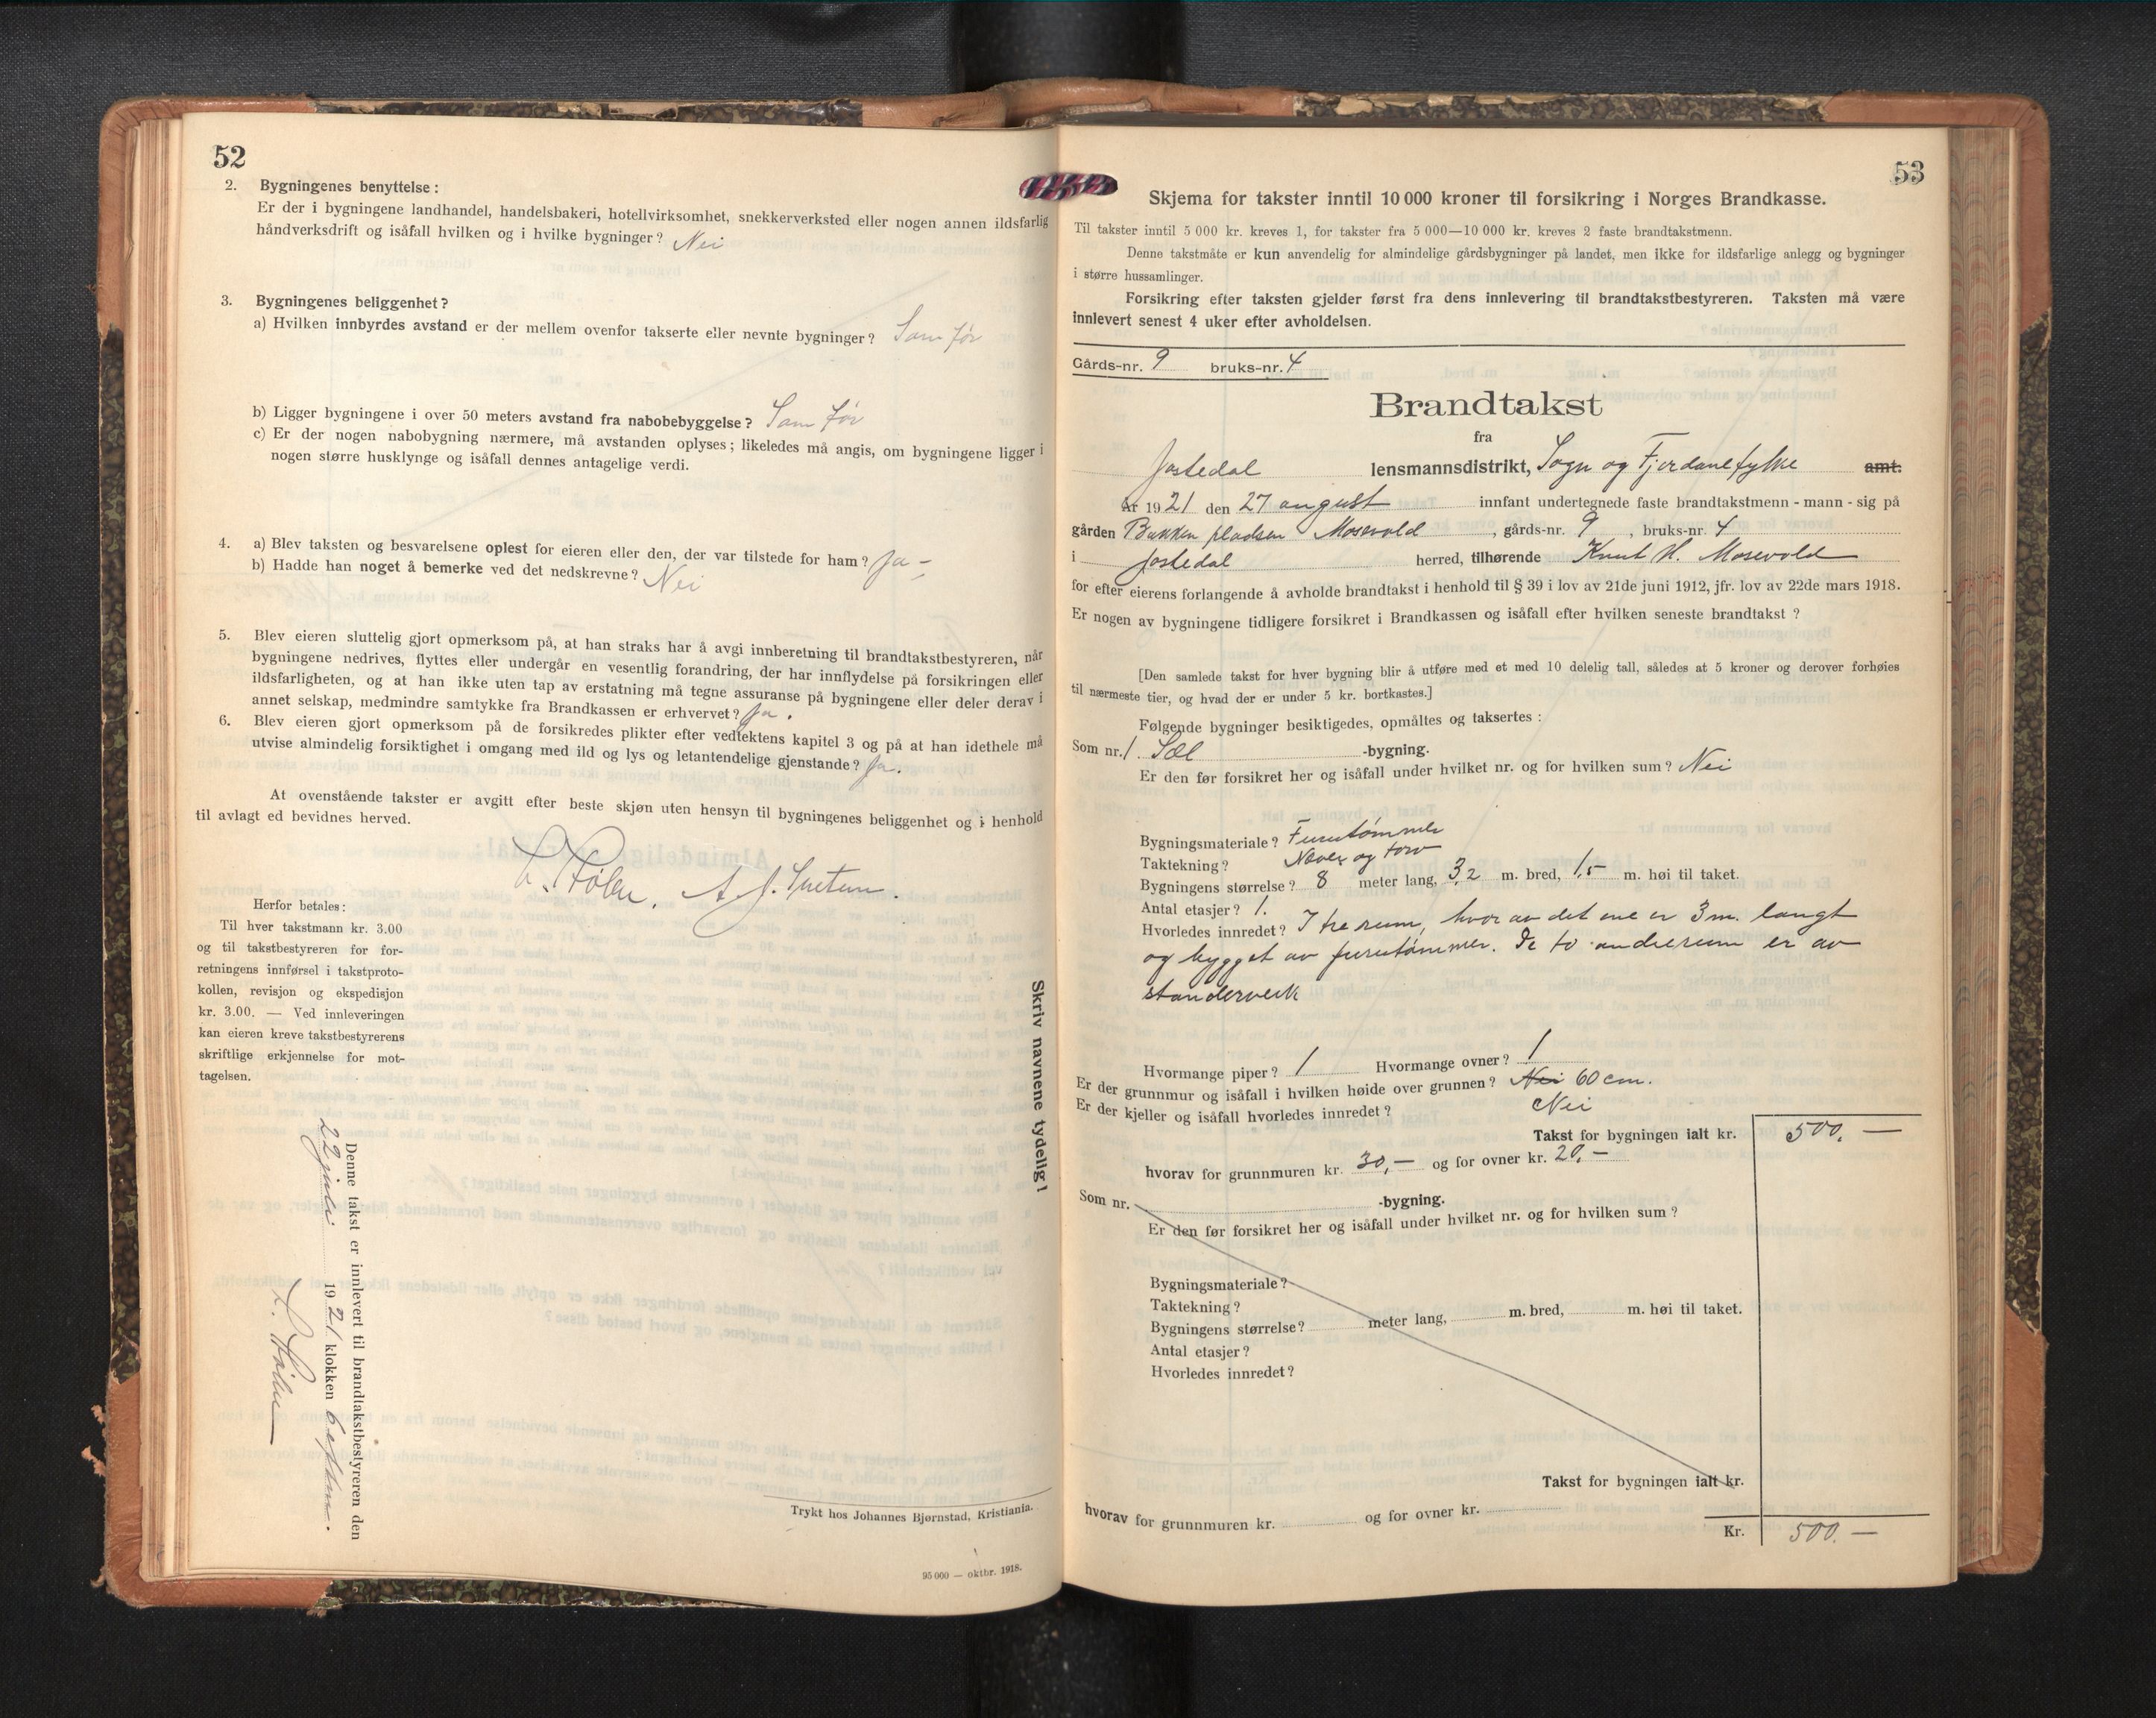 52
2. Bygningenes benyttelse:
Er der i bygningene landhandel, handelsbakeri, hotellvirksomhet, snekkerverksted eller nogen annen ildsfarlig
håndverksdrift og isåfall hvilken og i hvilke bygninger? Nei
3. Bygningenes beliggenhet?
a) Hvilken innbyrdes avstand er der mellem ovenfor takserte eller nevnte bygninger? Som før
b) Ligger bygningene i over 50 meters avstand fra nabobebyggelse? Som før
c) Er der nogen nabobygning nærmere, må avstanden oplyses; likeledes må angis, om bygningene ligger i
nogen større husklynge og isåfall dennes antagelige verdi.
4. a) Blev taksten og besvarelsene oplest for eieren eller den, der var tilstede for ham? Ja –
b) Hadde han noget å bemerke ved det nedskrevne? Nei
5. Blev eieren sluttelig gjort opmerksom på, at han straks har å avgi innberetning til brandtakstbestyreren, når
bygningene nedrives, flyttes eller undergår en vesentlig forandring, der har innflydelse på forsikringen eller
ildsfarligheten, og at han ikke uten tap av erstatning må tegne assuranse på bygningene eller deler derav i
annet selskap, medmindre samtykke fra Brandkassen er erhvervet? Ja.
6. Blev eieren gjort opmerksom på de forsikredes plikter efter vedtektens kapitel 3 og på at han idethele må
utvise almindelig forsiktighet i omgang med ild og lys og letantendelige gjenstande? Ja.
At ovenstående takster er avgitt efter beste skjøn uten hensyn til bygningenes beliggenhet og i henhold
til avlagt ed bevidnes herved.
Herfor betales:
Til hver takstmann kr. 3.00
og til takstbestyreren for for-
retningens innførsel i takstproto-
kollen, revisjon og ekspedisjon
kr. 3.00. — Ved innleveringen
kan eieren kreve takstbestyrerens
skriftlige erkjennelse for mot-
tagelsen.
Skriv navnene tydelig!
Denne takst er innlevert til brandtakstbestyreren den
22 juli 1921 klokken 6 eftm.
Trykt hos Johannes Bjørnstad, Kristiania.
95 000 — oktbr. 1918.
53
Skjema for takster inntil 10 000 kroner til forsikring i Norges Brandkasse.
Til takster inntil 5 000 kr. kreves 1, for takster fra 5 000—10 000 kr. kreves 2 faste brandtakstmenn.
Denne takstmåte er kun anvendelig for almindelige gårdsbygninger på landet, men ikke for ildsfarlige anlegg og bygninger
i større hussamlinger.
Forsikring efter taksten gjelder først fra dens innlevering til brandtakstbestyreren. Taksten må være
innlevert senest 4 uker efter avholdelsen.
Gårds-nr. 9 bruks-nr. 4
Brandtakst
fra
Jostedal lensmannsdistrikt, Sogn og Fjordane fylke amt.
År 1921 den 27 august innfant undertegnede faste brandtakstmenn - mann - sig på
gården Bakken pladsen Mosevold, gårds-nr. 9, bruks-nr. 4
i Jostedal herred, tilhørende Knut H. Mosevold
for efter eierens forlangende å avholde brandtakst i henhold til § 39 i lov av 21de juni 1912, jfr. lov av 22de mars 1918.
Er nogen av bygningene tidligere forsikret i Brandkassen og isåfall efter hvilken seneste brandtakst ?
[Den samlede takst for hver bygning blir å utføre med et med 10 delelig tall, således at 5 kroner og derover forhøies
til nærmeste tier, og hvad der er under 5 kr. bortkastes.]
Følgende bygninger besiktigedes, opmåltes og taksertes :
Som nr. 1 Sæl -bygning.
Er den før forsikret her og isåfall under hvilket nr. og for hvilken sum? Nei
Bygningsmateriale? Furutømmer
Taktekning? Never og torv
Bygningens størrelse? 8 meter lang, 3,2 m. bred, 1,5 m. høi til taket.
Antal etasjer? 1.
Hvorledes innredet? I tre rum, hvor av det ene er 3 m. langt
og bygget av furutømmer. De to andre rum er av
standerverk
Hvormange piper? 1 Hvormange ovner? 1
Er der grunnmur og isåfall i hvilken høide over grunnen? Nei 60 cm.
Er der kjeller og isåfall hvorledes innredet? Nei
Takst for bygningen ialt kr. 500,—
hvorav for grunnmuren kr. 30,— og for ovner kr. 20,—
Som nr. -bygning.
Er den før forsikret her og isåfall under hvilket nr. og for hvilken sum?
Bygningsmateriale?
Taktekning?
Bygningens størrelse? meter lang, m. bred, m. høi til taket.
Antal etasjer?
Hvorledes innredet?
Takst for bygningen ialt kr.
hvorav for grunnmuren kr. og for ovner kr.
Kr. 500.—